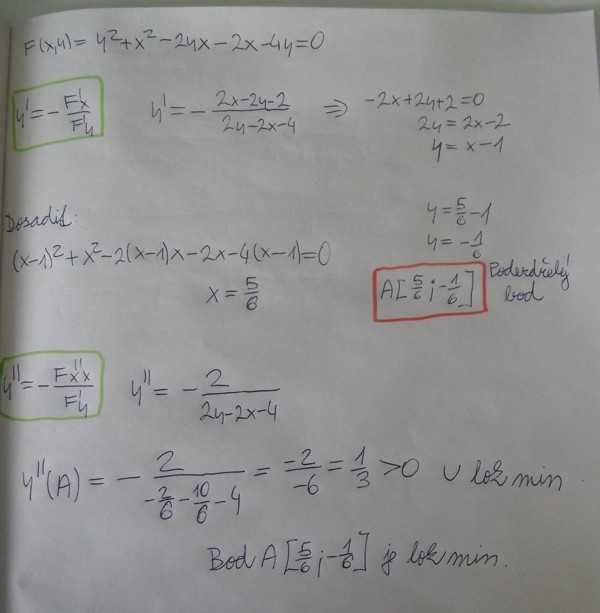 F(x,y) = y² + x² - 2yx - 2x - 4y = 0
y' = - F'x / F'y
y' = - (2x - 2y - 2) / (2y - 2x - 4) ⇒ -2x + 2y + 2 = 0
2y = 2x - 2
y = x - 1
Dosadit:
(x-1)² + x² - 2(x-1)x - 2x - 4(x-1) = 0
x = 5/6
y = 5/6 - 1
y = - 1/6
A[5/6 ; -1/6] Podezdřelý
bod
y'' = - F''xx / F'y
y'' = - 2 / (2y - 2x - 4)
y''(A) = - 2 / (-2/6 - 10/6 - 4) = -2/-6 = 1/3 > 0 ∪ lok min
Bod A [5/6 ; -1/6] je lok min.